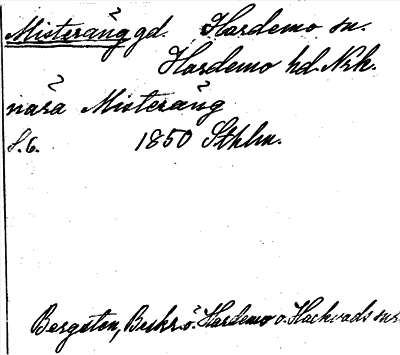 Misteräng gd. Hardemo sn.
Hardemo hd. Nrk.
nära Misteräng
s. 6. 1850 Sthlm.
Bergsten, Beskr. ö. Hardemo o. Hackvads snr.